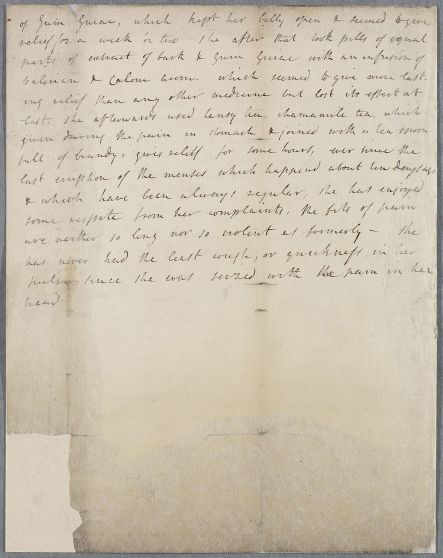 of Gum Guiac, which kept her belly open & seemed to give
relief for a week or two she after that took pills of equal
parts of extract of bark & Gum Guiac with an infusion of
valerian & Calom arom. which seemed to give more last-
ing relief than any other medicine but lost its effect at
last, she afterwards used tansy tea, chamamile tea, which
given during the pain in stomach & joined with a tea spoon
full of brandy, gives relief for some hours, ever since the
last eruption of the menses which happend about ten days ago
& which have been always regular, she has enjoyed
some respite from her complaints, the fits of pain
are neither so long nor so violent as formerly — she
has never had the least cough, or quickness in her
pulse since she was seized with the pain in her
head